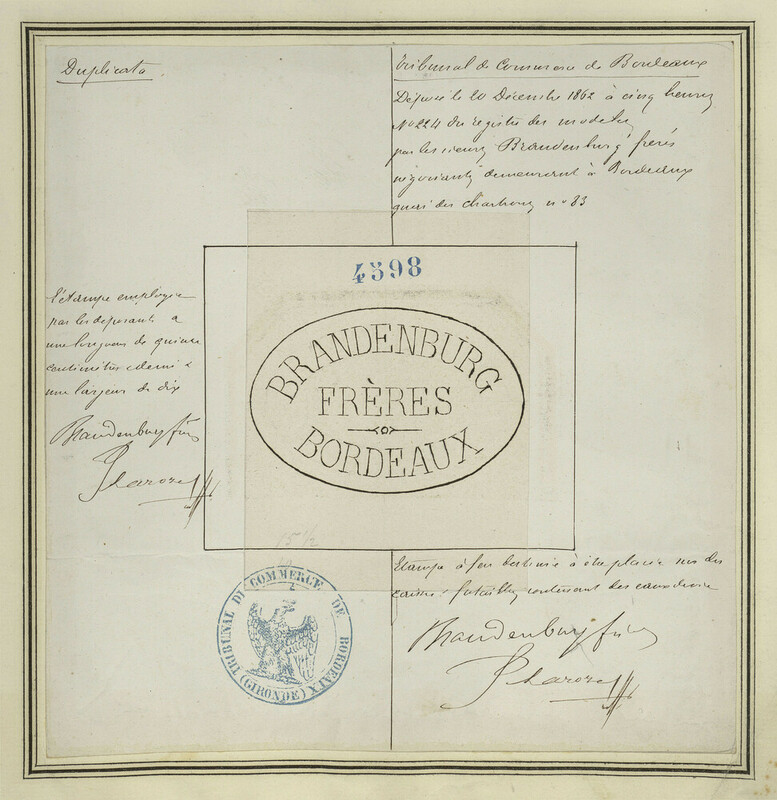 Duplicata
Tribunal de Commerce de Bordeaux
Déposé le 20 Décembre 1862 à cinq heures
N° 224 du registre des modèles
par les sieurs Brandenburg frères
négociants demeurant à Bordeaux
quai des Chartrons n° 83
4598
BRANDENBURG
FRÈRES
BORDEAUX
l'étampe employée
par les déposants a
une longueur de quinze
centimètres et demi &
une largeur de dix
Brandenburg frères
15 1/2
Etampe à feu destinée à être placée sur des
caisses & futailles contenant des eaux de vie
Brandenburg frères
TRIBUNAL DE COMMERCE DE BORDEAUX
(GIRONDE)